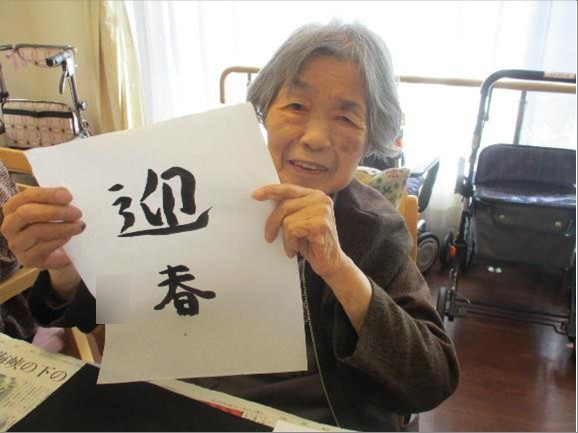 迎
春
下の